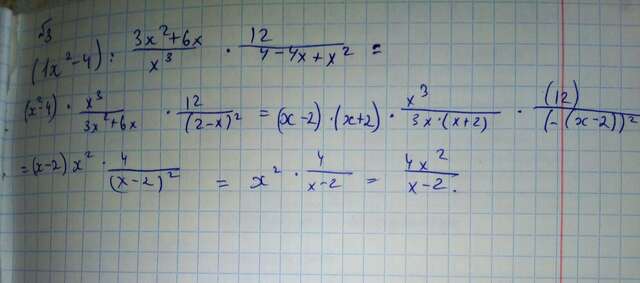 √3
(1x²-4) : (3x²+6x)/x³ · 12/(4-4x+x²) =
(x²-4) · x³/(3x²+6x) · 12/(2-x)² = (x-2)·(x+2) · x³/(3x·(x+2)) · (12)/(-(x-2))²
=(x-2) x² · 4/(x-2)² = x² · 4/(x-2) = 4x²/(x-2).